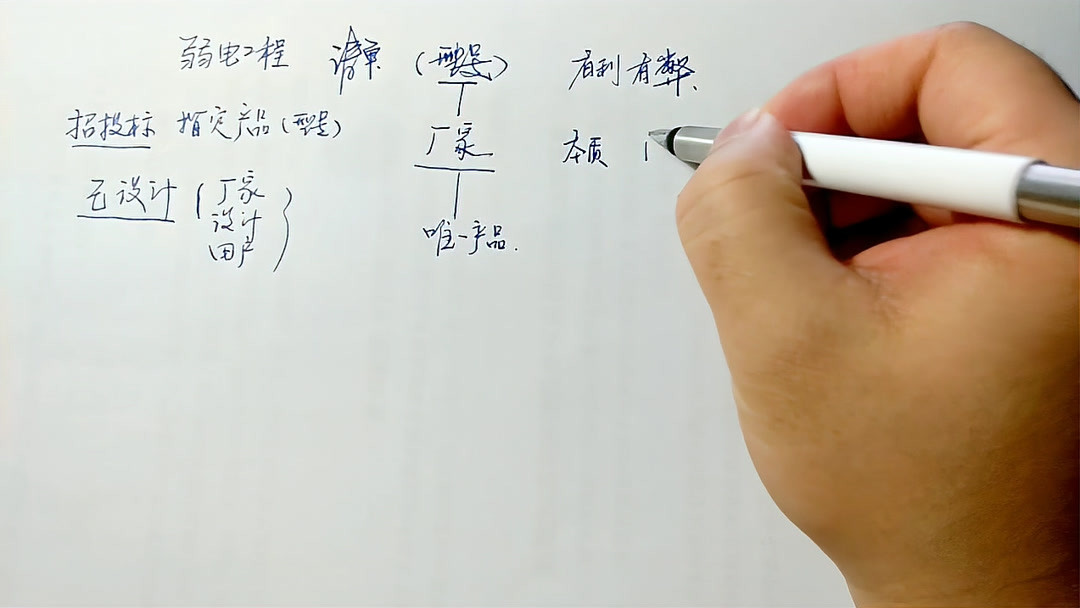 弱电工程 清单 (型号) 有利有弊.
招投标 指定产品(型号)
厂家
本质
无设计 (厂家
设计
用户)
唯一产品.